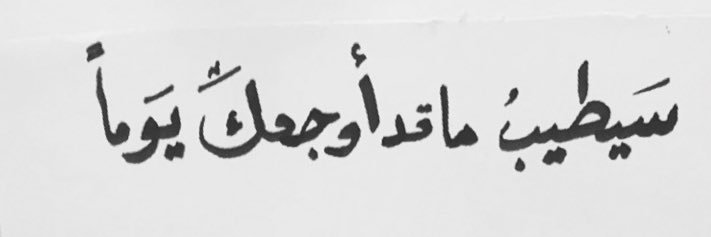 سَيطيبُ ما قد أوجعكَ يَوَماً